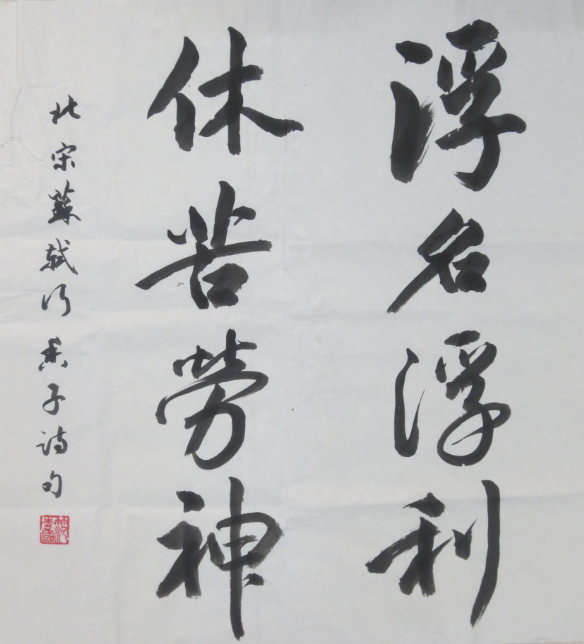 浮名浮利
休苦勞神
北宋蘇軾行香子诗句